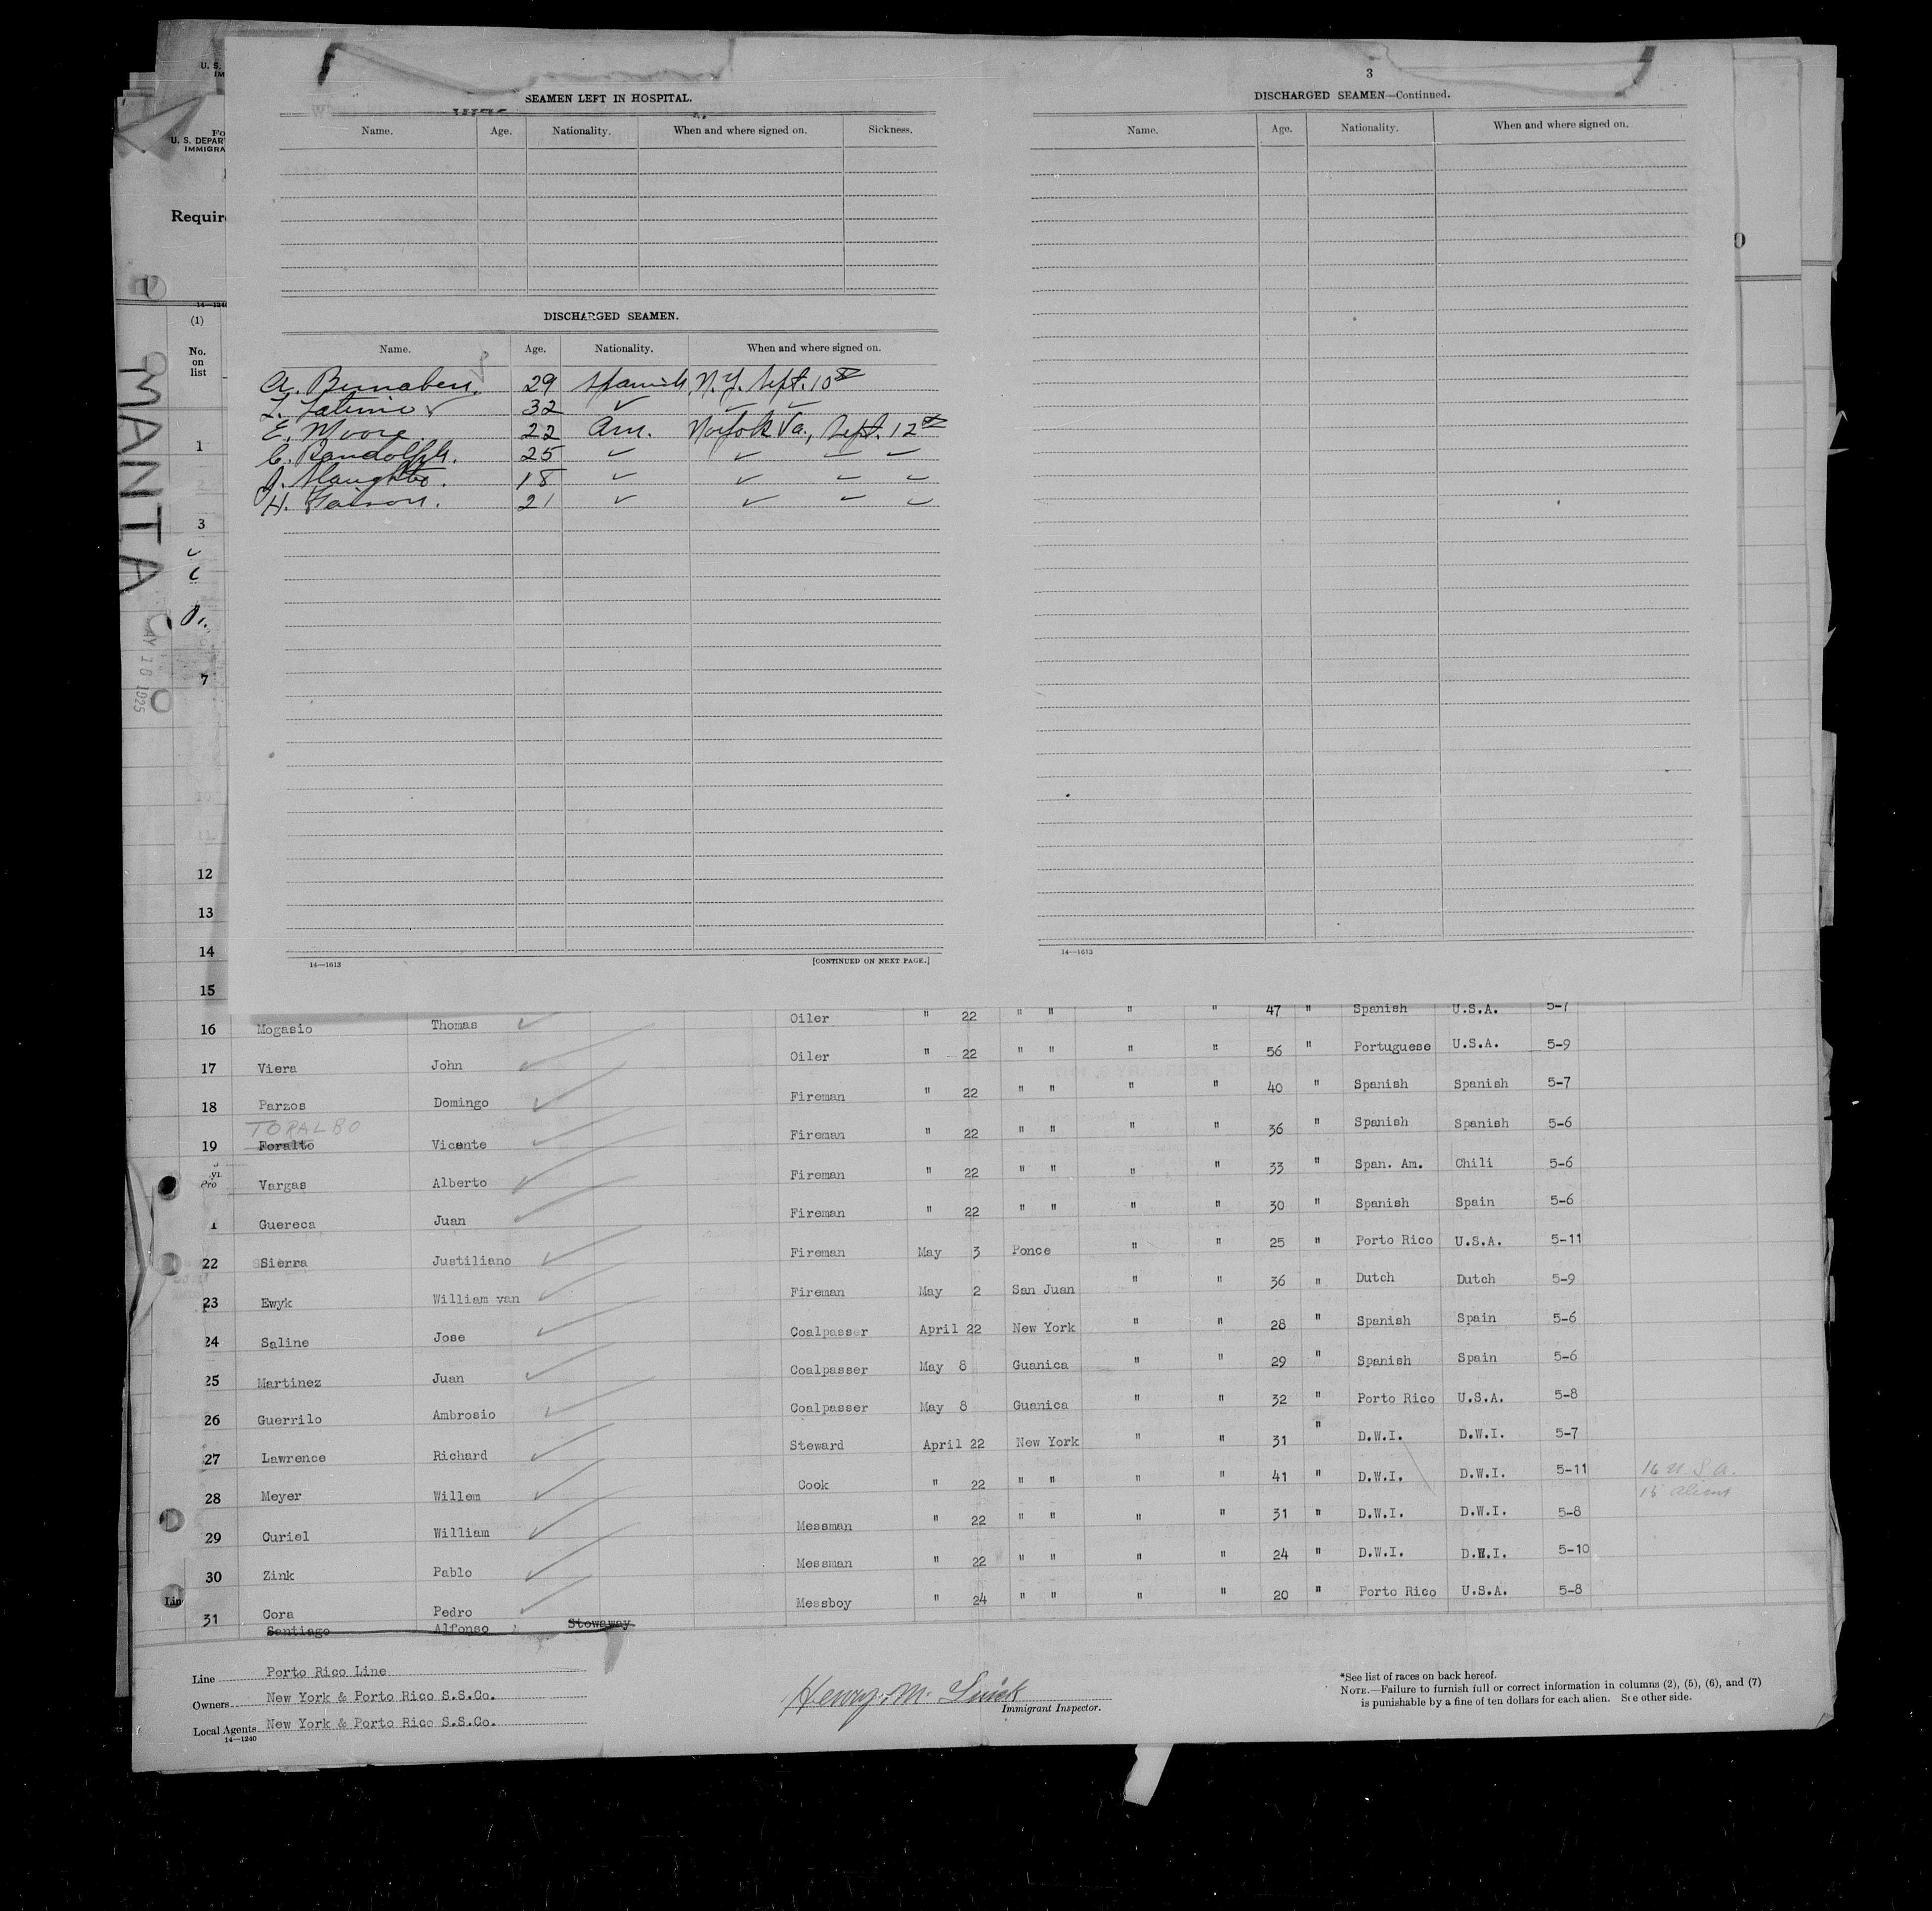 U. S.
IM
U. S. DEPAR
IMMIGRA
Requir
14—1240
(1)
No.
on
list
MANTA
MAY 10 1925
1
3
7
12
13
14
15
SEAMEN LEFT IN HOSPITAL.
Name. Age. Nationality. When and where signed on. Sickness.
DISCHARGED SEAMEN.
Name. Age. Nationality. When and where signed on.
A. 29 Spanish N.Y. Sept. 10th
32 ✓ ✓ ✓
E. Moore 22 Am. Norfolk Va., Sept. 12th
C. Randolph. 25 ✓ ✓ ✓ ✓
J. Slaughter. 18 ✓ ✓ ✓ ✓
H. 21 ✓ ✓ ✓ ✓
14—1613 [CONTINUED ON NEXT PAGE.]
3
DISCHARGED SEAMEN—Continued.
Name. Age. Nationality. When and where signed on.
14—1613
16 Mogasio Thomas ✓ Oiler " 22 " " " " 47 " Spanish U.S.A. 5-7
17 Viera John ✓ Oiler " 22 " " " " 56 " Portuguese U.S.A. 5-9
18 Parzos Domingo ✓ Fireman " 22 " " " " 40 " Spanish Spanish 5-7
TORALBO
19 Foralto Vicente ✓ Fireman " 22 " " " " 36 " Spanish Spanish 5-6
Vargas Alberto ✓ Fireman " 22 " " " " 33 " Span. Am. Chili 5-6
1 Guereca Juan ✓ Fireman " 22 " " " " 30 " Spanish Spain 5-6
22 Sierra Justiliano ✓ Fireman May 3 Ponce " " 25 " Porto Rico U.S.A. 5-11
23 Ewyk William van ✓ Fireman May 2 San Juan " " 36 " Dutch Dutch 5-9
24 Saline Jose ✓ Coalpasser April 22 New York " " 28 " Spanish Spain 5-6
25 Martinez Juan ✓ Coalpasser May 8 Guanica " " 29 " Spanish Spain 5-6
26 Guerrilo Ambrosio ✓ Coalpasser May 8 Guanica " " 32 " Porto Rico U.S.A. 5-8
27 Lawrence Richard ✓ Steward April 22 New York " " 31 " D.W.I. D.W.I. 5-7
28 Meyer Willem ✓ Cook " 22 " " " " 41 " D.W.I. D.W.I. 5-11 16 U.S.A.
15 Aliens
29 Curiel William ✓ Messman " 22 " " " " 31 " D.W.I. D.W.I. 5-8
30 Zink Pablo ✓ Messman " 22 " " " " 24 " D.W.I. D.W.I. 5-10
31 Cora Pedro ✓ Messboy " 24 " " " " 20 " Porto Rico U.S.A. 5-8
Santiago Alfonso Stowaway
Line Porto Rico Line
Owners New York & Porto Rico S.S.Co.
Local Agents New York & Porto Rico S.S.Co.
14—1240
Henry M.
Immigrant Inspector.
*See list of races on back hereof.
NOTE.—Failure to furnish full or correct information in columns (2), (5), (6), and (7)
is punishable by a fine of ten dollars for each alien. See other side.